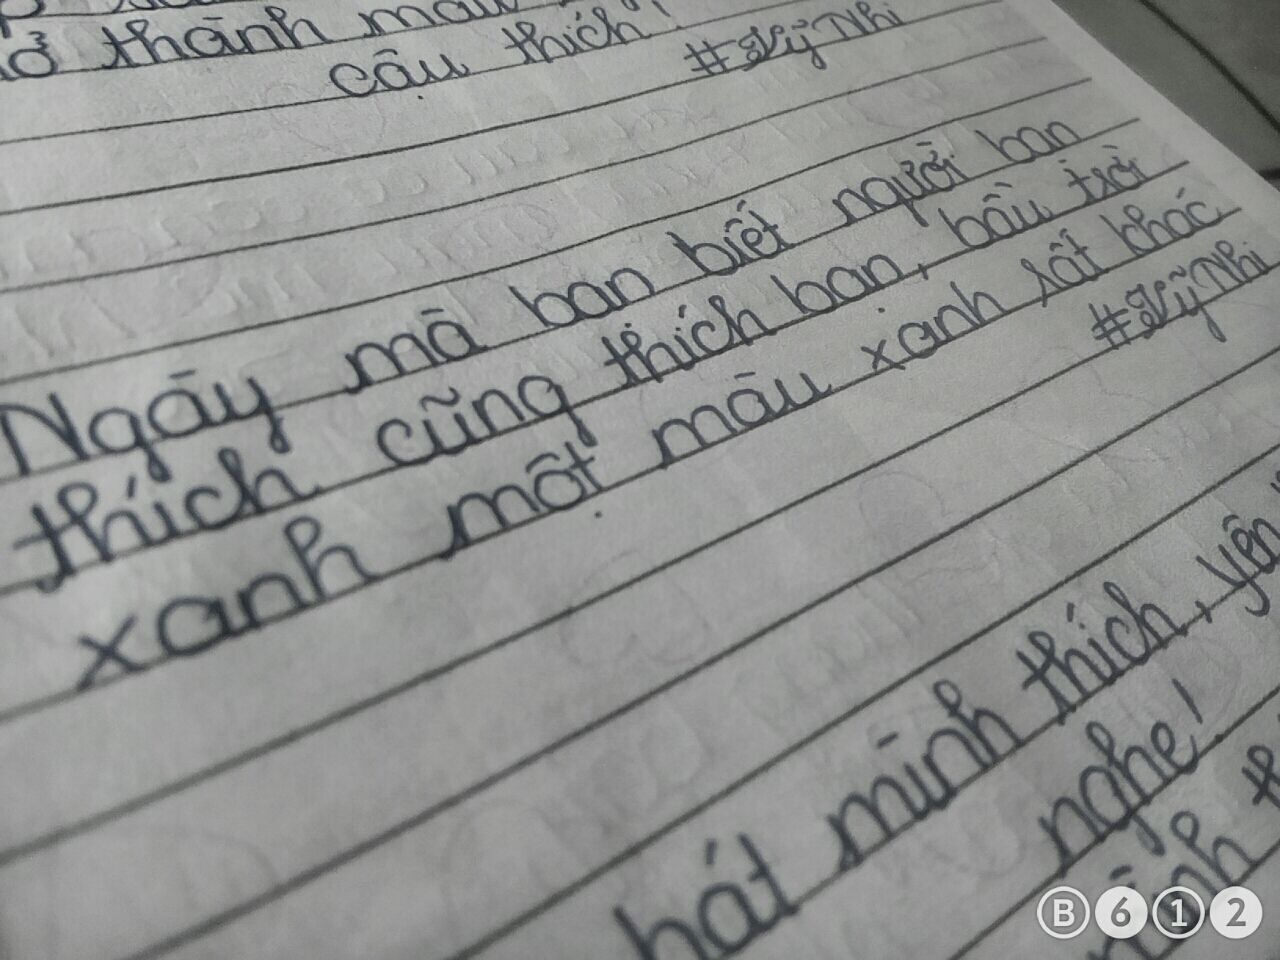 ở thành màu
cậu thích!
#Vỹ Nhi
Ngày mà bạn biết người bạn
thích cũng thích bạn, bầu trời
xanh một màu xanh rất khác
#Vỹ Nhi
hát mình thích, yên
nghe!
mình th
B612